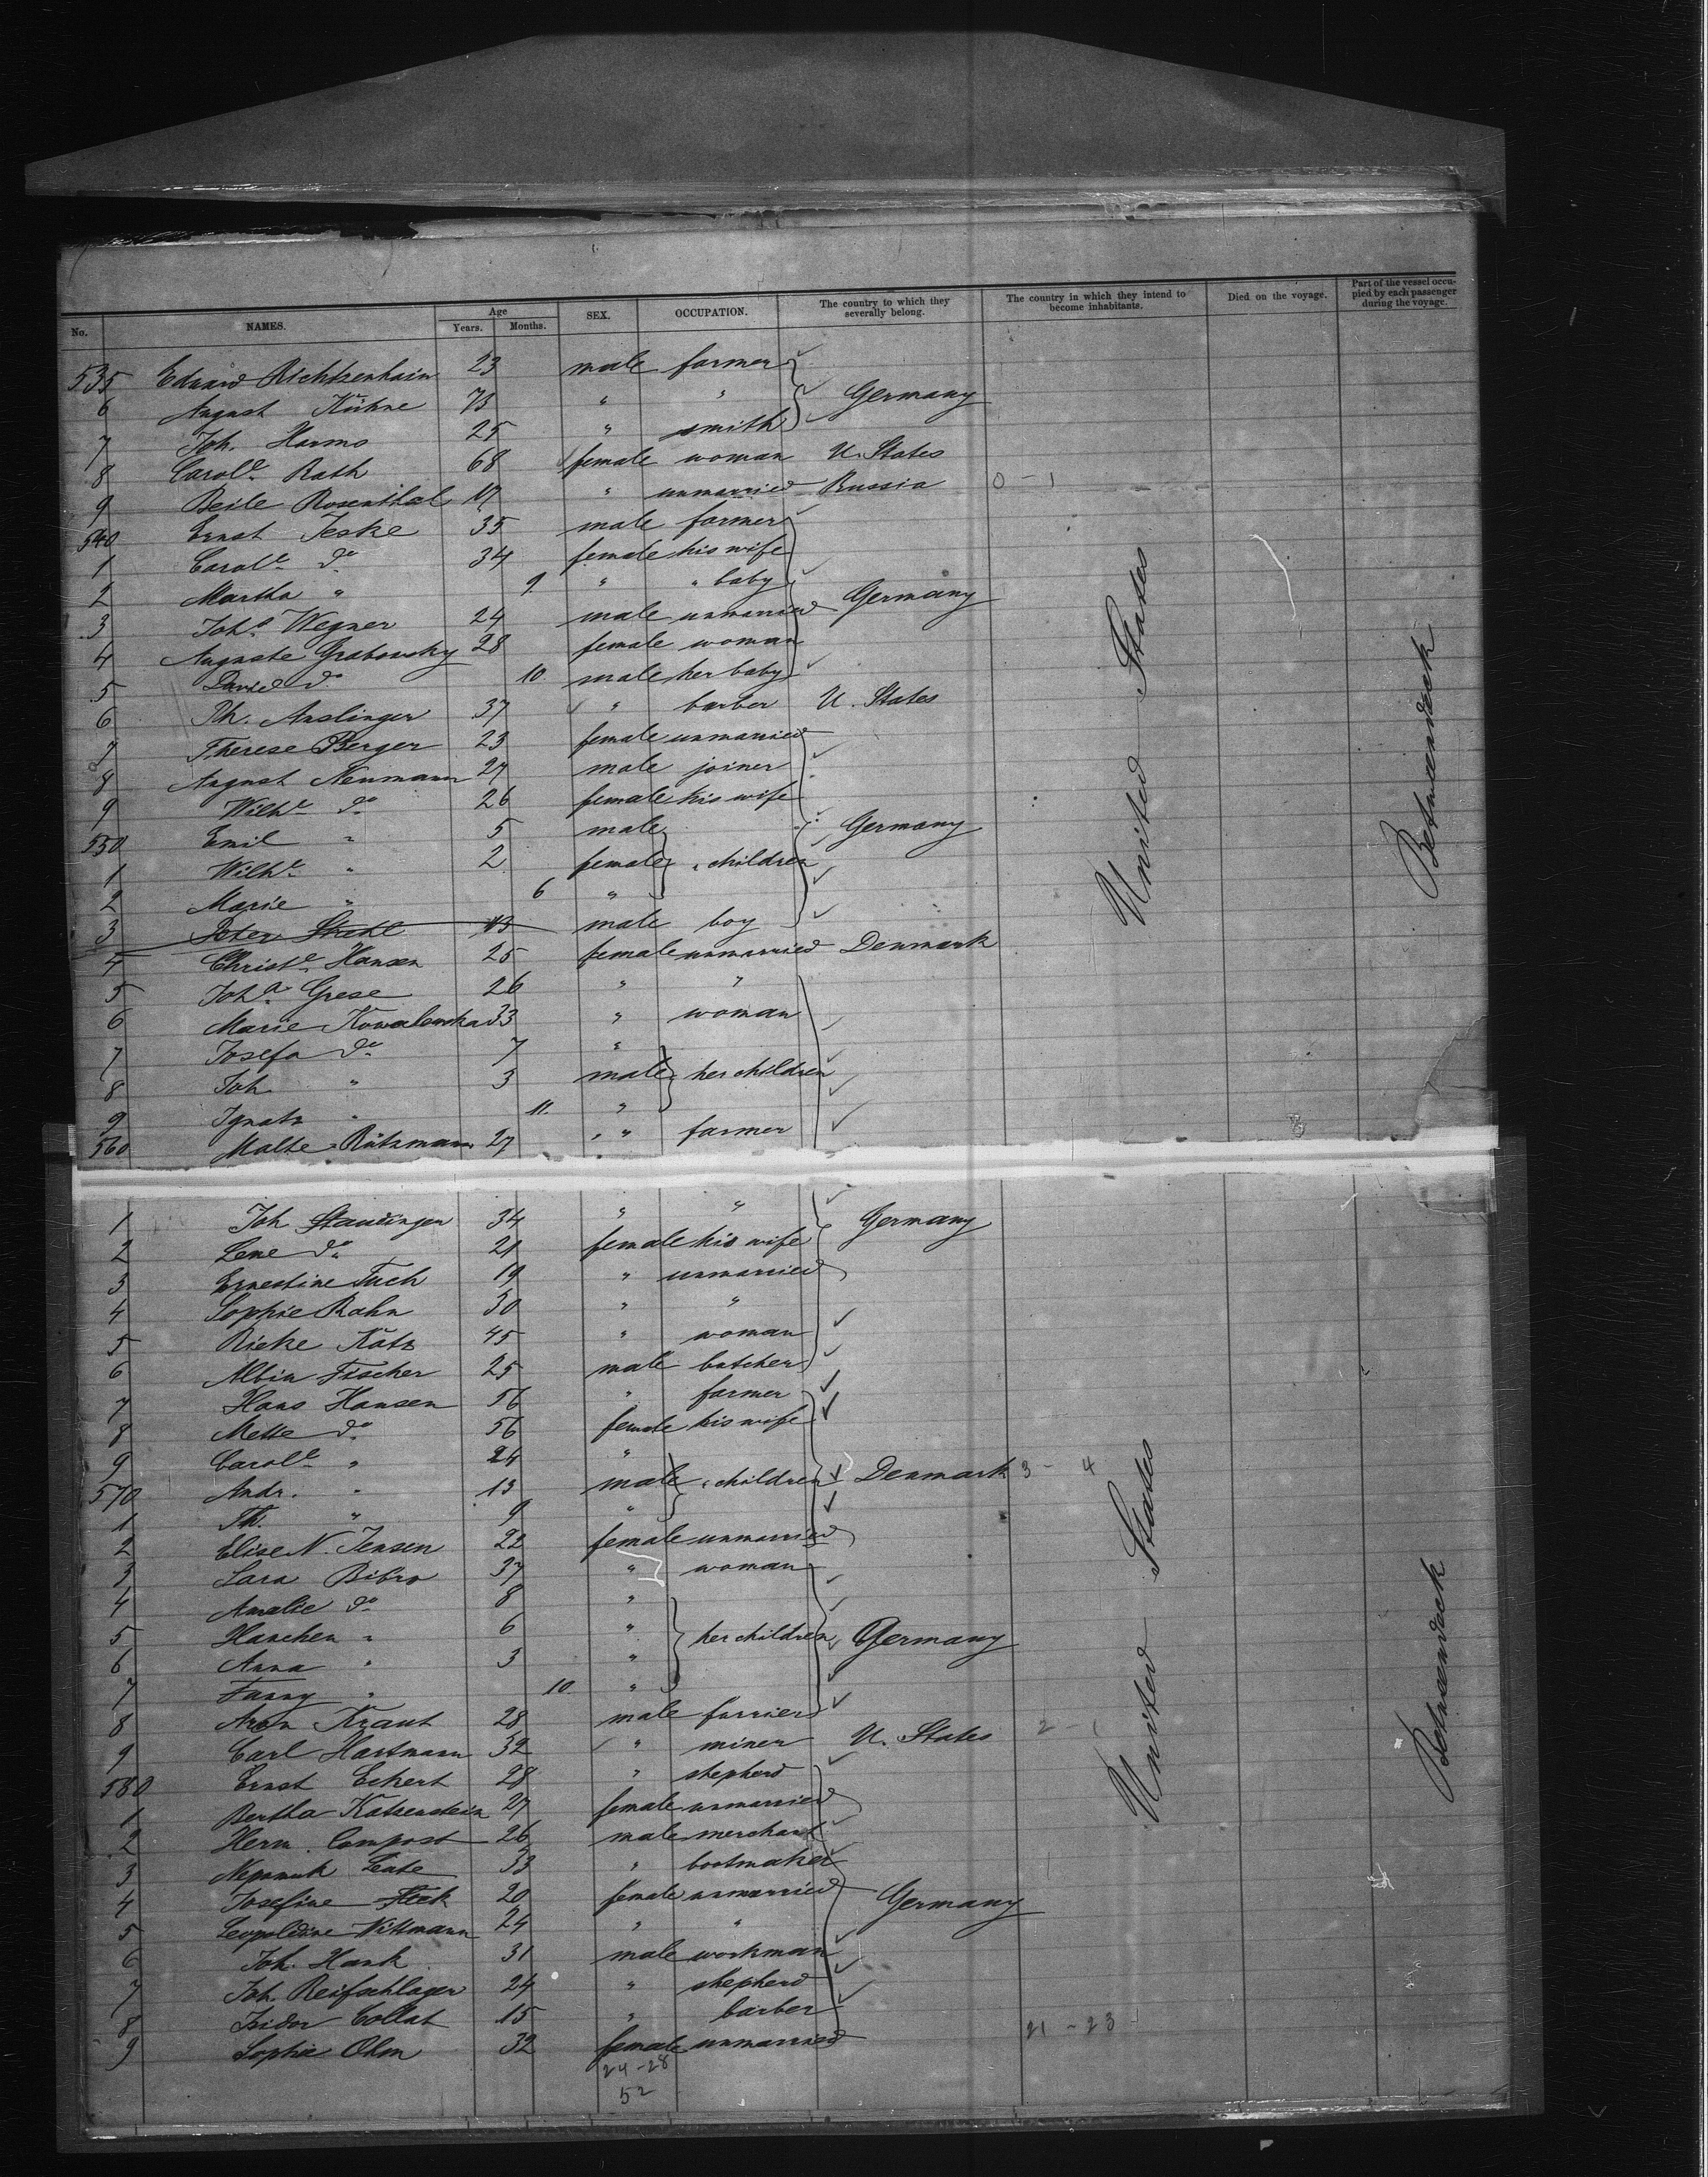 No. NAMES. Age Years. Months. SEX. OCCUPATION. The country to which they severally belong. The country in which they intend to become inhabitants. Died on the voyage. Part of the vessel occupied by each passenger during the voyage.
535 Eduard Richtzenhain 23 male farmer
6 August Kühne 73 " " Germany
7 Joh. Harms 25 " smith
8 Carole. Rath 68 female woman U. States
9 Beile Rosenthal 17 " unmarried Russia 0 - 1
540 Ernst Jeske 35 male farmer
1 Carole. do 34 female his wife
2 Martha " 9 " " baby
3 Johs. Wegner 24 male unmarried Germany
4 Auguste Grabowsky 28 female woman
5 David do 10 male her baby
6 Th. Anslinger 37 " barber U. States
7 Therese Berger 23 female unmarried
8 August Neumann 27 male joiner
9 Wilhe. do 26 female his wife
550 Emil " 5 male Germany
1 Wilhe. " 2 female " children
2 Marie " 6 "
3 Peter Strehl 13 male boy
4 Christe. Hansen 25 female unmarried Denmark
5 Joha. Grese 26 " "
6 Marie Kowalewska 33 " woman
7 Josefa do 7 "
8 Joh " 3 male her children
9 Ignatz " 11 "
560 Malte Rätzmann 27 " " farmer
1 Joh Staudinger 34 " " Germany
2 Lene do 21 female his wife
3 Ernestine Tuch 19 " unmarried
4 Sophie Rahn 30 " "
5 Rieke Katz 45 " woman
6 Albin Fischer 25 male butcher
7 Hans Hansen 56 " farmer
8 Mette do 56 female his wife
9 Carole. " 24 "
570 Andr. " 13 male " children Denmark 3 - 4
1 Th. " 9 "
2 Elise N. Jensen 22 female unmarried
3 Sara Bibro 37 " woman
4 Amalie do 8 "
5 Hanchen " 6 " her children Germany
6 Anna " 3 "
7 Fanny " 10 "
8 Aron Kraut 28 male furrier
9 Carl Hartmann 32 " miner U. States 2 - 1
580 Ernst Eckert 28 " shepherd
1 Bertha Katzenstein 27 female unmarried
2 Herm. Compost 26 male merchant
3 Nepomuk 33 " bootmaker
4 Josefine Fleck 20 female unmarried Germany
5 Leopoldine Wittmann 24 " "
6 Joh. Hank 31 male workman
7 Joh. Reifschlager 24 " shepherd
8 Isidor Collat 15 " barber
9 Sophie Ohm 32 female unmarried 21 - 23
24 - 28
52
United States
Betweendeck
United States
Betweendeck